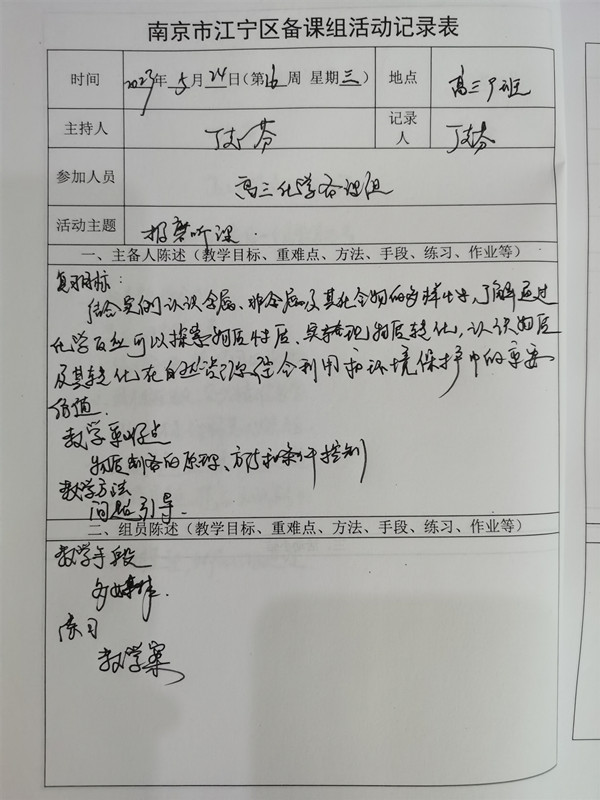 南京市江宁区备课组活动记录表
时间 2023年 5月 24日(第16周 星期三) 地点 高三7班
主持人 丁志芬 记录人 丁志芬
参加人员 高三化学备课组
活动主题 听课
一、主备人陈述(教学目标、重难点、方法、手段、练习、作业等)
复习目标:
结合实例认识金属、非金属及其化合物的多样性,了解通过
化学反应可以探索物质性质、实现物质转化,认识物质
及其转化在自然资源综合利用和环境保护中的重要
价值.
教学重难点
物质制备的原理、方法和条件控制
教学方法
问题引导.
二、组员陈述(教学目标、重难点、方法、手段、练习、作业等)
教学手段
多媒体.
练习
教学案